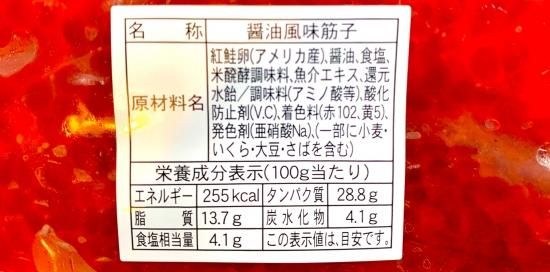 名称 醤油風味筋子
原材料名 紅鮭卵(アメリカ産)、醤油、食塩、
米醗酵調味料、魚介エキス、還元
水飴／調味料(アミノ酸等)、酸化
防止剤(V.C)、着色料(赤102、黄5)、
発色剤(亜硝酸Na)、(一部に小麦・
いくら・大豆・さばを含む)
栄養成分表示(100g当たり)
エネルギー 255kcal タンパク質 28.8g
脂質 13.7g 炭水化物 4.1g
食塩相当量 4.1g この表示値は、目安です。